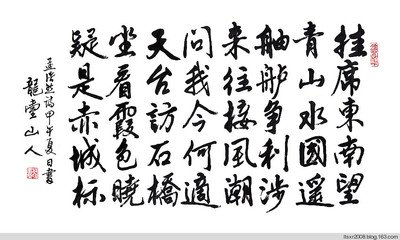 挂席東南望
青山水國遥
舳舻争利涉
来往接風潮
問我今何適
天台訪石橋
坐看霞色曉
疑是赤城標
孟浩然詩甲午夏日書
龍堂山人
ltsxr2008.blog.163.com